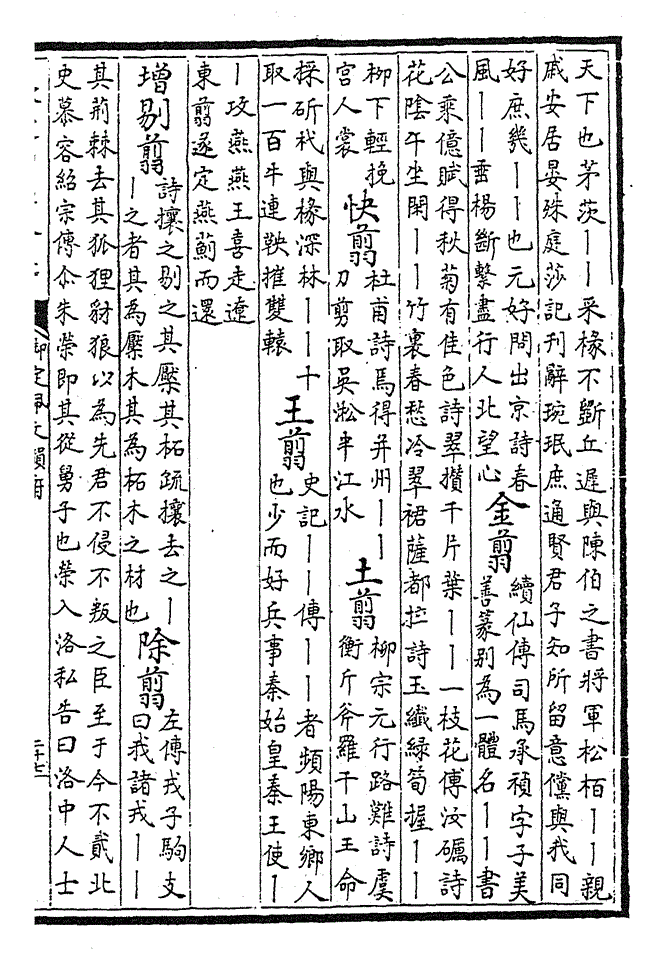 天下也茅茨丨丨采椽不斲丘遲與陳伯之書將軍松柏丨丨親
戚安居晏殊庭莎記刊辭琬珉庶通賢君子知所留意儻與我同
好庶幾丨丨也元好問出京詩春
風丨丨垂楊斷繫盡行人北望心
金翦
續仙傳司馬承禎字子美
善篆别為一體名丨丨書
公乘億賦得秋菊有佳色詩翠攢千片葉丨丨一枝花傅汝礪詩
花陰午坐閑丨丨竹裏春愁冷翠裙薩都拉詩玉纖綠筍握丨丨
柳下輕挽
宫人裳
快翦
杜甫詩焉得并州丨丨
刀剪取吳淞半江水
土翦
柳宗元行路難詩虞
衡斤斧羅千山工命
採斫杙與椽深林丨丨十
取一百牛連鞅摧雙轅
王翦
史記丨丨傳丨丨者頻陽東鄉人
也少而好兵事秦始皇秦王使丨
丨攻燕燕王喜走遼
東翦遂定燕薊而還
增剔翦
詩攘之剔之其檿其柘疏攘去之丨
丨之者其為檿木其為柘木之材也
除翦
左傳戎子駒支
曰我諸戎丨丨
其荆棘去其狐狸豺狼以為先君不侵不叛之臣至于今不貳北
史慕容紹宗傳尒朱榮即其從舅子也榮入洛私告曰洛中人士
御定佩文韻府